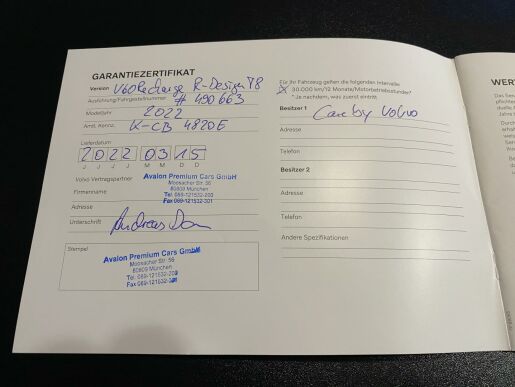 GARANTIEZERTIFIKAT
Version V60 Recharge R-Design T8
Ausführung/Fahrgestellnummer # 490663
Modelljahr 2022
Amtl. Kennz. K-CB 4820E
Lieferdatum
2022 03 15
J J J J M M D D
Volvo Vertragspartner
Avalon Premium Cars GmbH
Firmenname
Moosacher Str. 56
80809 München
Adresse
Tel. 089-121532-200
Fax 089-121532-301
Unterschrift Andreas
Stempel
Avalon Premium Cars GmbH
Moosacher Str. 56
80809 München
Tel. 089-121532-200
Fax 089-121532-301
Für Ihr Fahrzeug gelten die folgenden Intervalle:
X 30.000 km/12 Monate/Motorbetriebsstunden?
*Je nachdem, was zuerst eintritt
Besitzer 1 Care by Volvo
Adresse
Telefon
Besitzer 2
Adresse
Telefon
Andere Spezifikationen